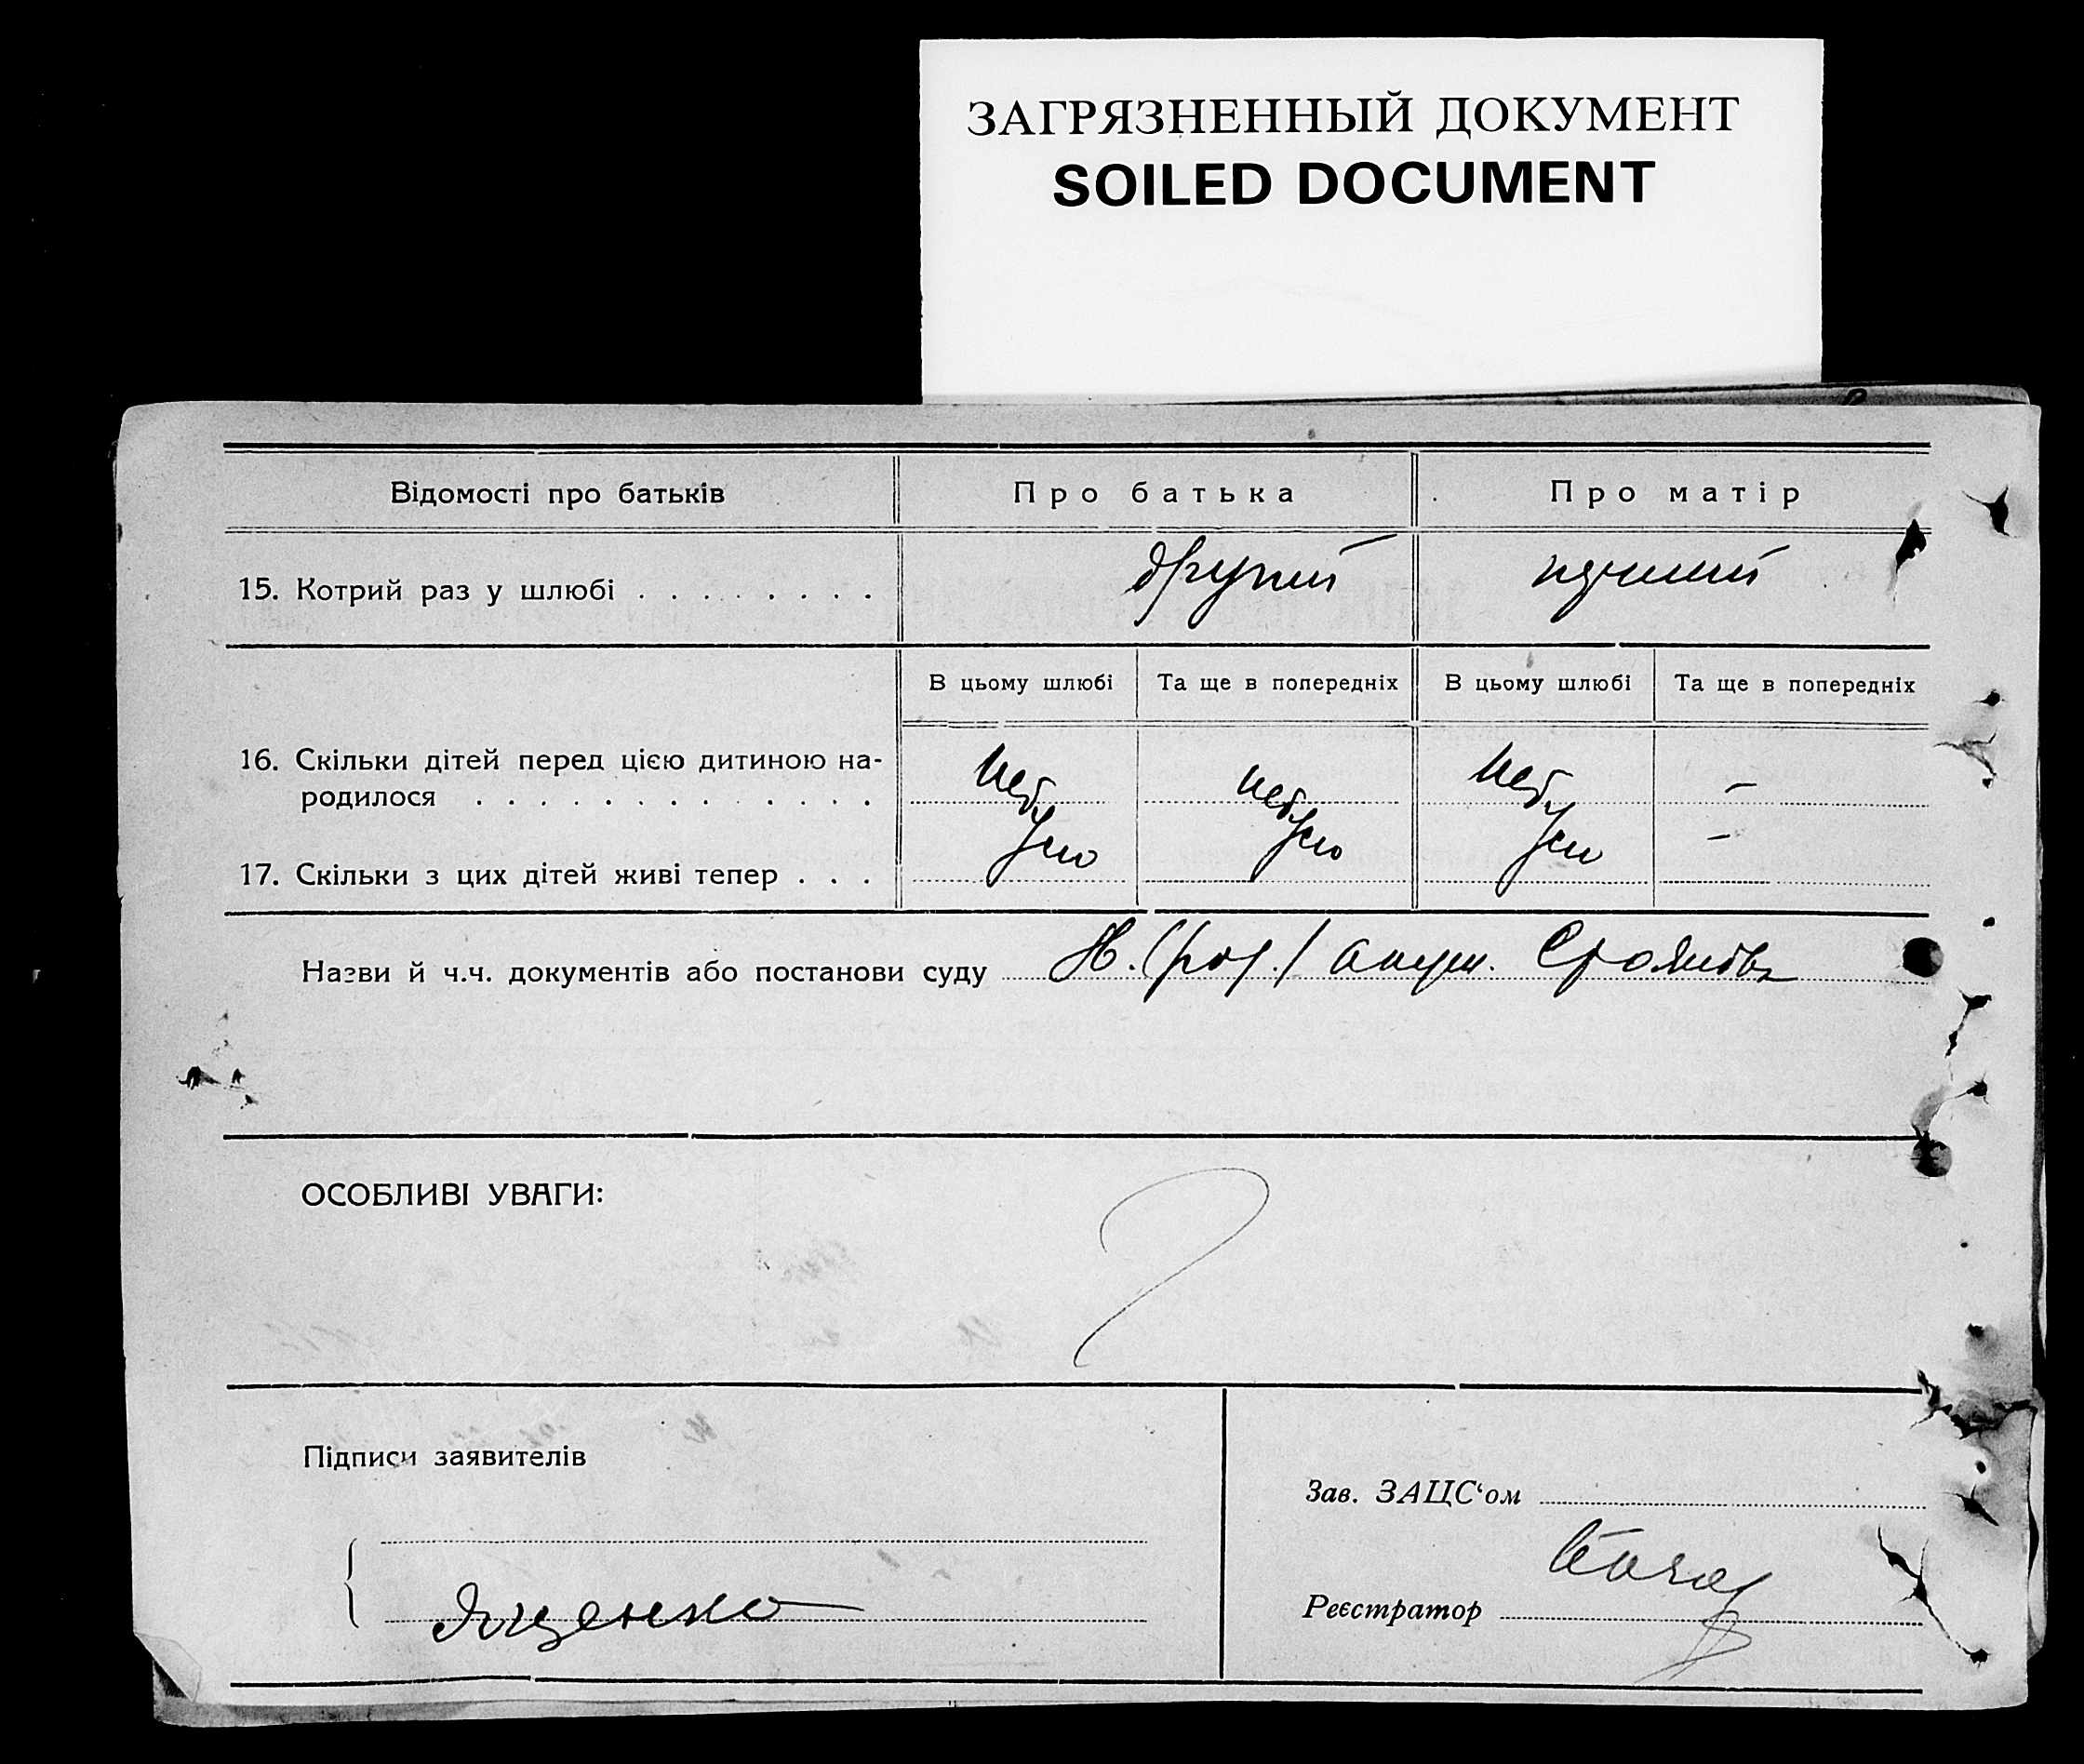 ЗАГРЯЗНЕННЫЙ ДОКУМЕНТ
SOILED DOCUMENT
Відомості про батьків Про батька Про матір
15. Котрий раз у шлюбі . . . . . . . . другий перший
В цьому шлюбі Та ще в попередніх В цьому шлюбі Та ще в попередніх
16. Скільки дітей перед цією дитиною на-
родилося . . . . . . . . . . . . . небуло небуло небуло –
17. Скільки з цих дітей живі тепер . . . –
Назви й ч.ч. документів або постанови суду
ОСОБЛИВІ УВАГИ:
Підписи заявителів
Зав. ЗАЦС‘ом
Яценко
Реєстратор